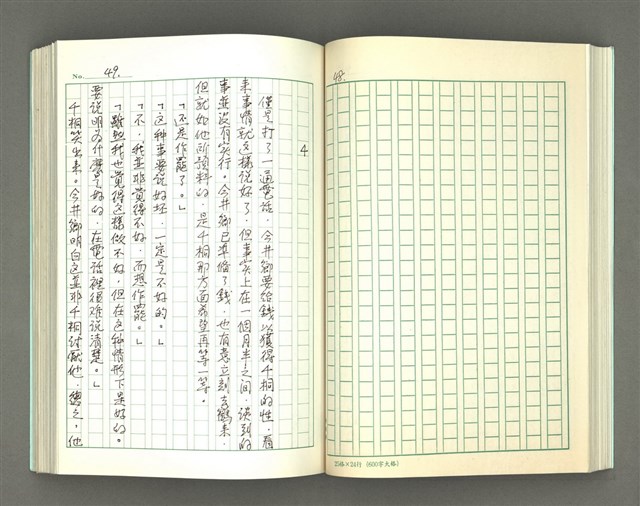 48.
25格×24行 (600字大格)
No. 49.
4
僅是打了一通電話，今井鄉要給錢以獲得千桐的性，看
來事情就這樣說好了，但事实上在一個月半之间，谈到的
事並没有实行。今井鄉已準備了錢，也有意立刻去鶴来，
但就如他所預料的，是千桐那方面希望再等一等。
「还是作罷了。」
「这种事要说好坏，一定是不好的。」
「不，我並非覺得不好，而想作罷。」
「雖然我也覺得这樣做不好，但在这种情形下是好的。
要说明为什麼是好的，在電话裡很难说清楚。」
千桐笑出来。今井鄉明白这並非千桐讨厭他，總之，他